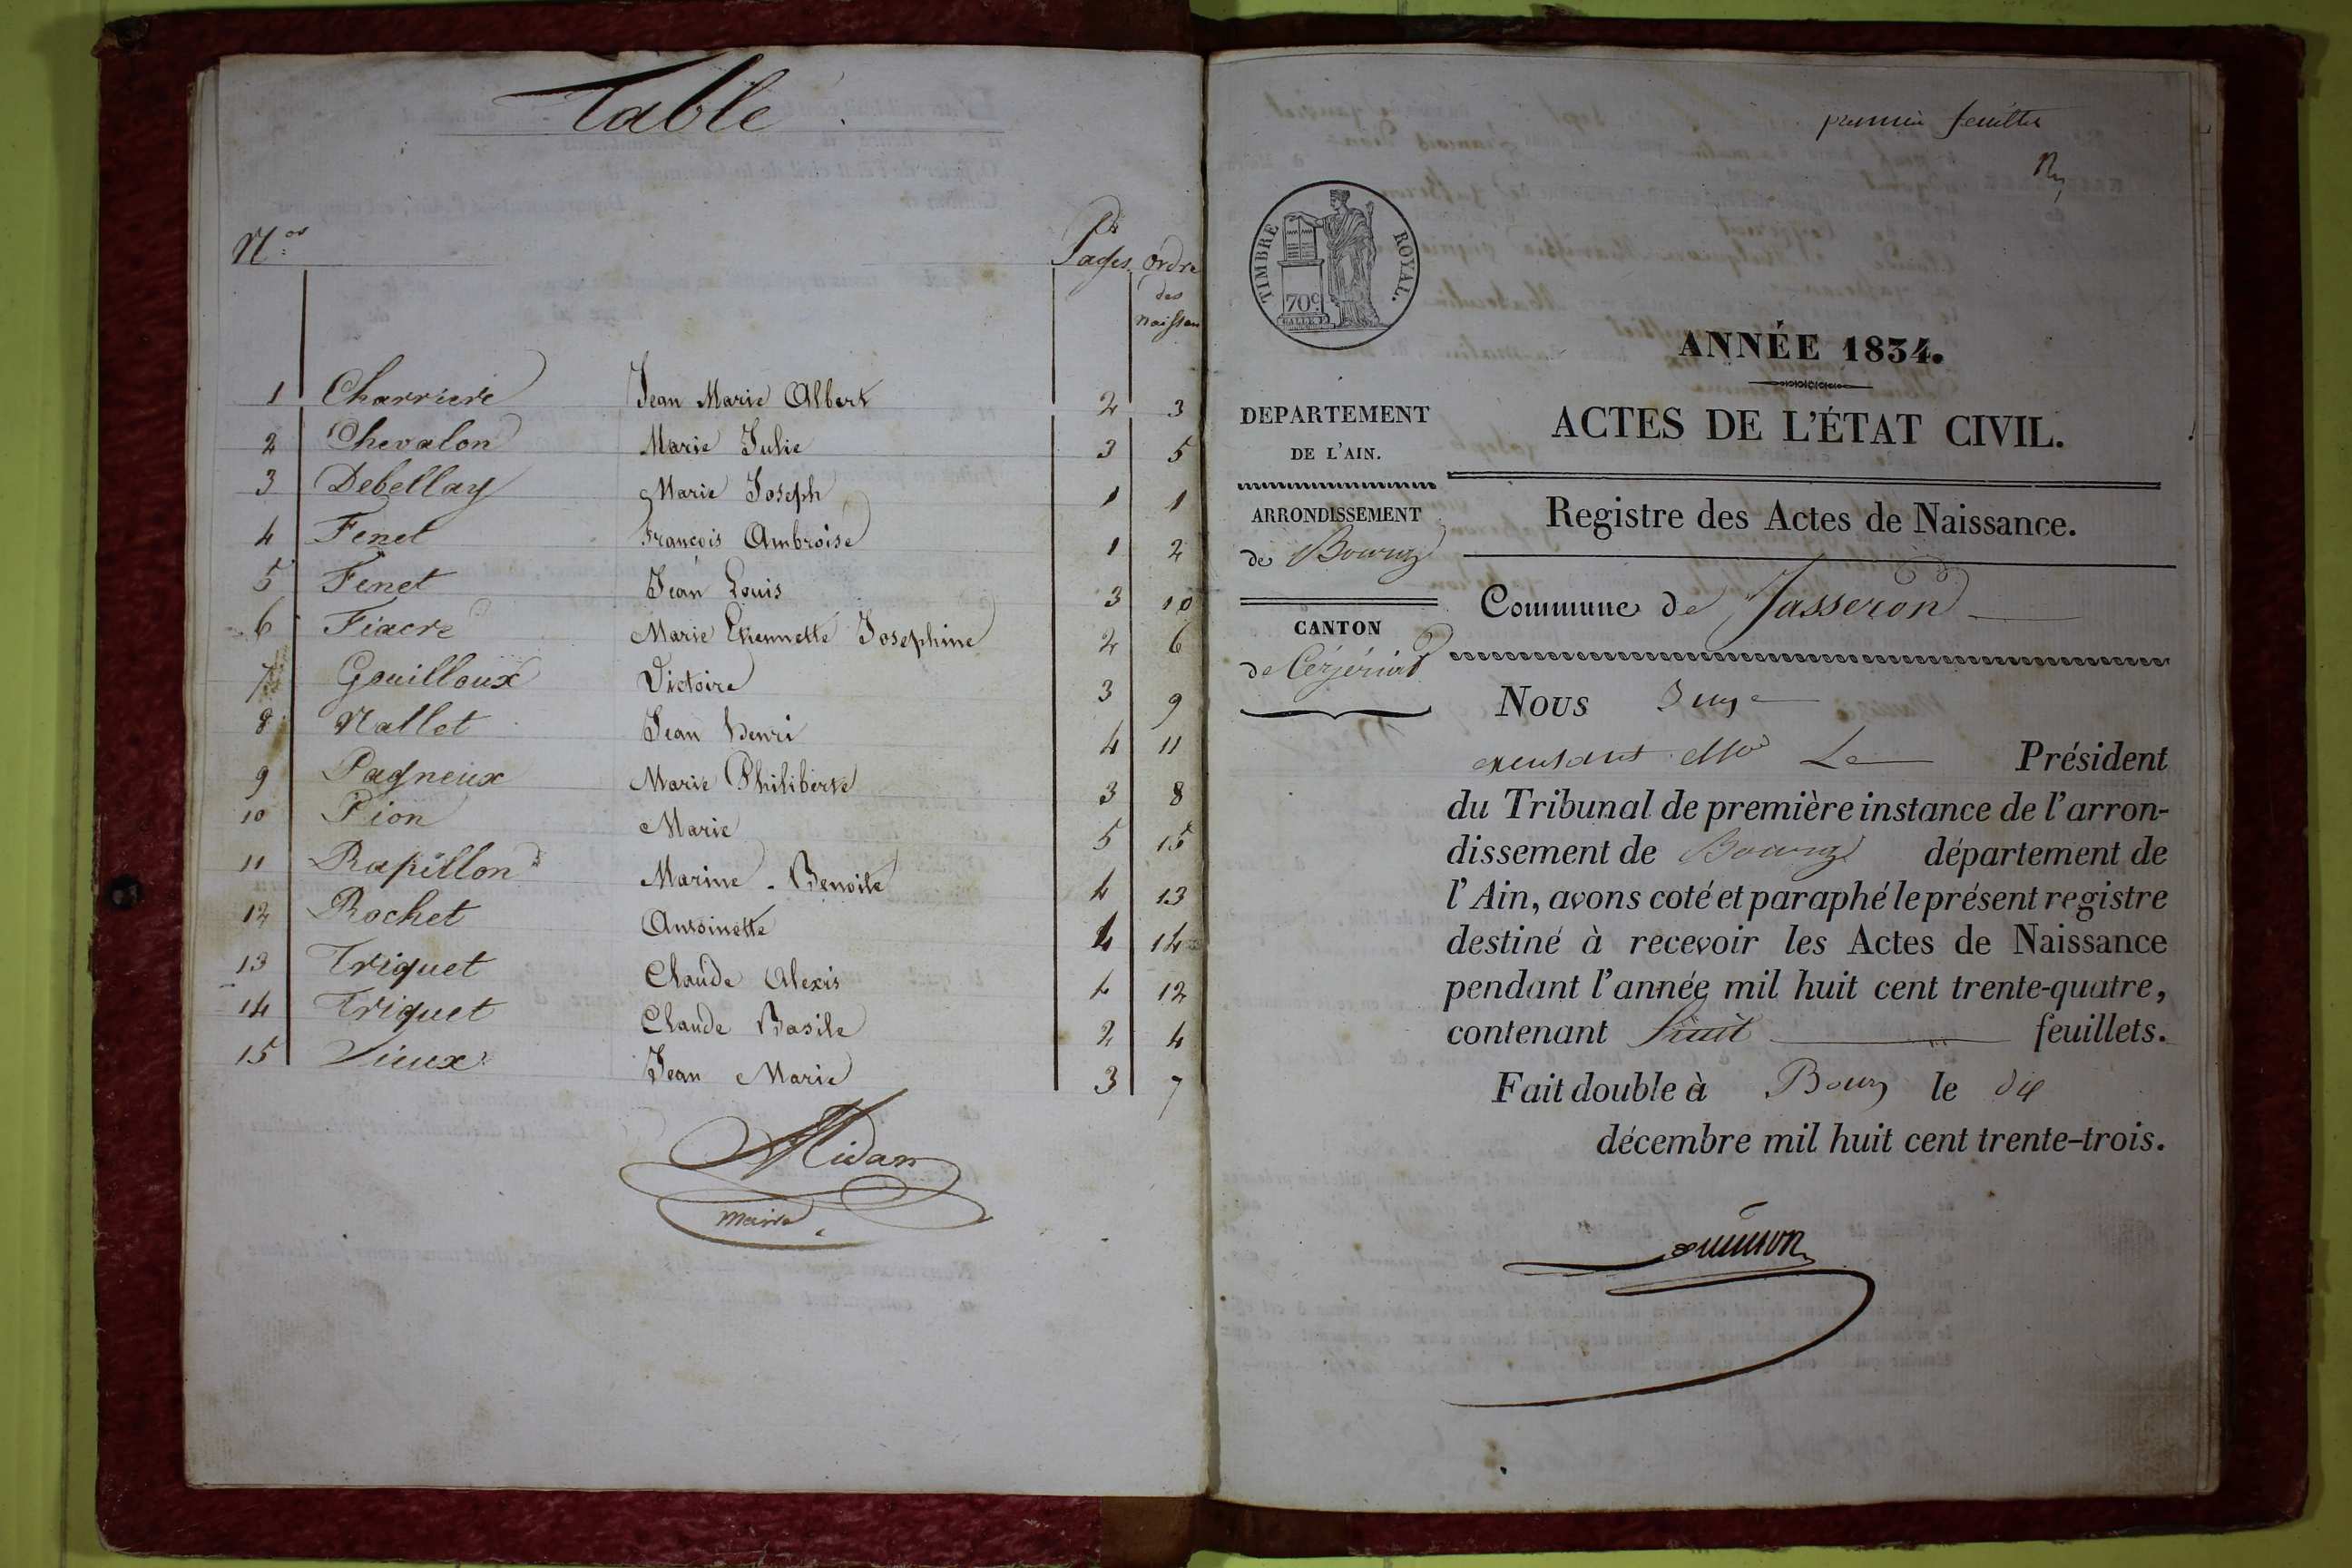 Table
Nos Pages ordre
des
naissan
1 Charriere Jean Marie Albert 2 3
2 Chevalon Marie Julie 3 5
3 Debellay Marie Joseph 1 1
4 Fenet François Ambroise 1 2
5 Fenet Jean Louis 3 10
6 Fiacre Marie Etiennette Josephine 2 6
7 Gouilloux Victoire 3 9
8 Nallet Jean Henri 4 11
9 Pagneux Marie Philiberte 3 8
10 Pion Marie 5 15
11 Rapillon Marine - Benoite 4 13
12 Rochet Antoinette 4 14
13 Triquet Claude Alexis 4 12
14 Triquet Claude Basile 2 4
15 Vieux Jean Marie 3 7
Midan
maire
premier feuillet
TIMBRE ROYAL.
70c
ANNÉE 1834.
DEPARTEMENT
DE L'AIN.
ARRONDISSEMENT
de Bourg
CANTON
de Ceyzériat
ACTES DE L'ÉTAT CIVIL.
Registre des Actes de Naissance.
Commune de Jasseron
Nous Juge
Le Président
du Tribunal de première instance de l'arron-
dissement de Bourg département de
l'Ain, avons coté et paraphé le présent registre
destiné à recevoir les Actes de Naissance
pendant l'année mil huit cent trente-quatre,
contenant huit feuillets.
Fait double à Bourg le dix
décembre mil huit cent trente-trois.